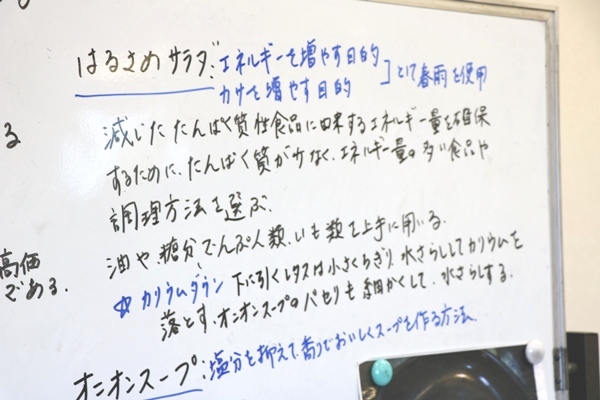 はるさめサラダ:エネルギーを増やす目的
カサを増やす目的
]として春雨を使用
る
減じたたんぱく質性食品に由来するエネルギー量を確保
するために、たんぱく質が少なく、エネルギー量の多い食品や
調理方法を選ぶ。
油や、糖分、でんぷん類、いも類を上手に用いる。
高価
である。
☆カリウムダウン 下に引くレタスは小さくちぎり、水さらししてカリウムを
落とす。オニオンスープのパセリも細かくして、水さらしする。
オニオンスープ:塩分を抑えて、香りでおいしくスープを作る方法